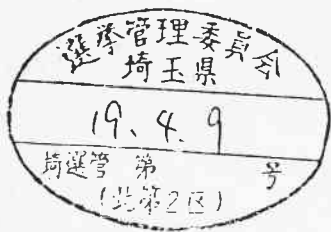 選挙管理委員会
埼玉県
19.4.9
埼選管 第 号
(北第2区)